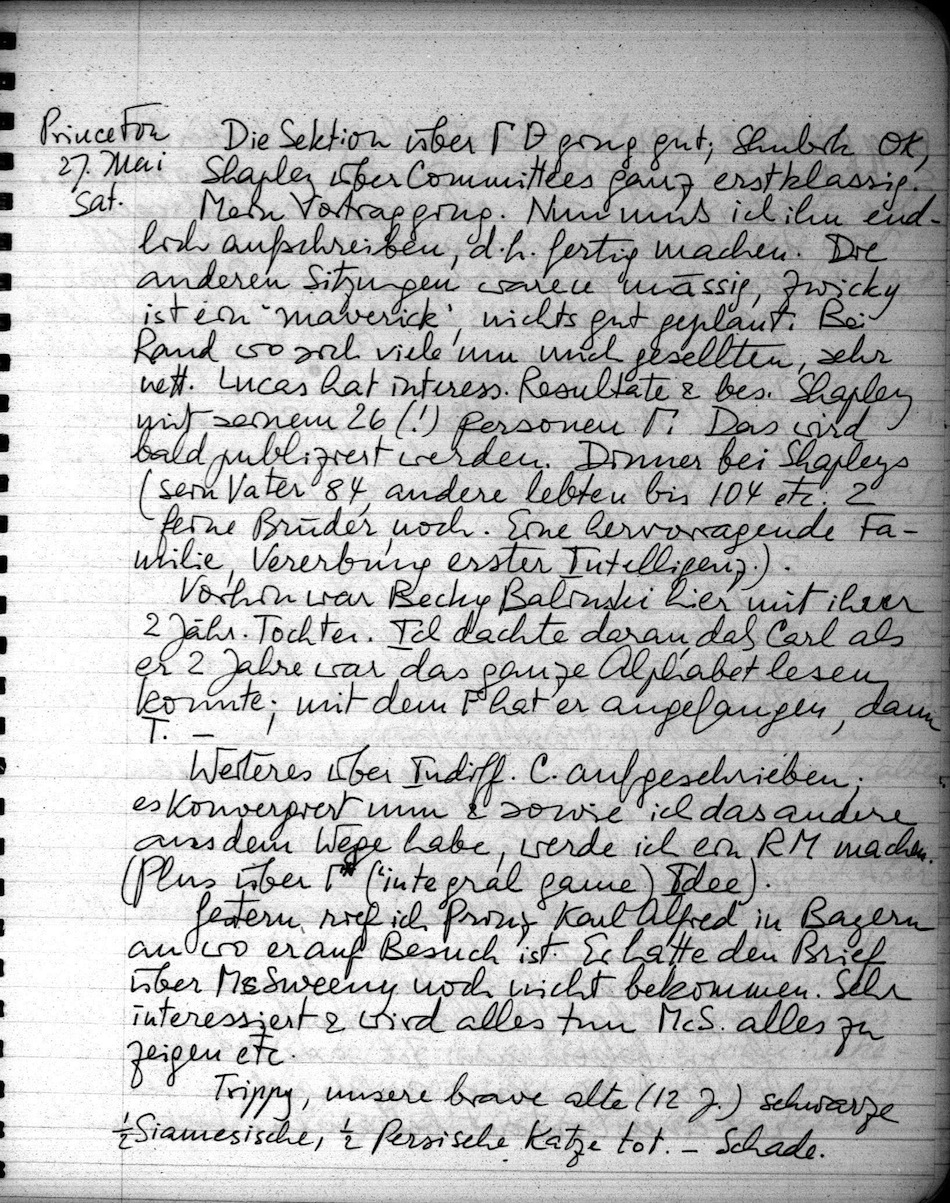 Princeton
27. Mai
Sat.
Die Sektion über Γ ging gut; Shubik OK,
Shapley über Committees ganz erstklassig.
Mein Vortrag ging. Nun muss ich ihn end-
lich aufschreiben, d.h. fertig machen. Die
anderen Sitzungen waren mässig, Zwicky
ist ein 'maverick', nichts gut geplant. Bei
Rand wo sich viele um mich gesellten, sehr
nett. Lucas hat interess. Resultate & bes. Shapley
mit seinem 26 (!) personen Γ. Das wird
bald publiziert werden. Dinner bei Shapleys
(sein Vater 84, andere lebten bis 104 etc. 2
seine Brüder noch. Eine hervorragende Fa-
milie, Vererbung erster Intelligenz.).
Vorhin war Becky Balinski hier mit ihrer
2 Jähr. Tochter. Ich dachte daran, daß Carl als
er 2 Jahre war das ganze Alphabet lesen
konnte; mit dem Γ hat er angefangen, dann
T. –
Weiteres über Indiff. C. aufgeschrieben;
es konvergiert nun & sowie ich das andere
aus dem Wege habe, werde ich ein RM machen.
(Plus über Γ* ("integral game) Idee).
Gestern rief ich Prinz Karl Alfred in Bayern
an wo er auf Besuch ist. Er hatte den Brief
über McSweeny noch nicht bekommen. Sehr
interessiert & wird alles tun McS. alles zu
zeigen etc.
Trippy, unsere brave alte (12 J.) schwarze
½ Siamesische, ½ Persische Katze tot. – Schade.